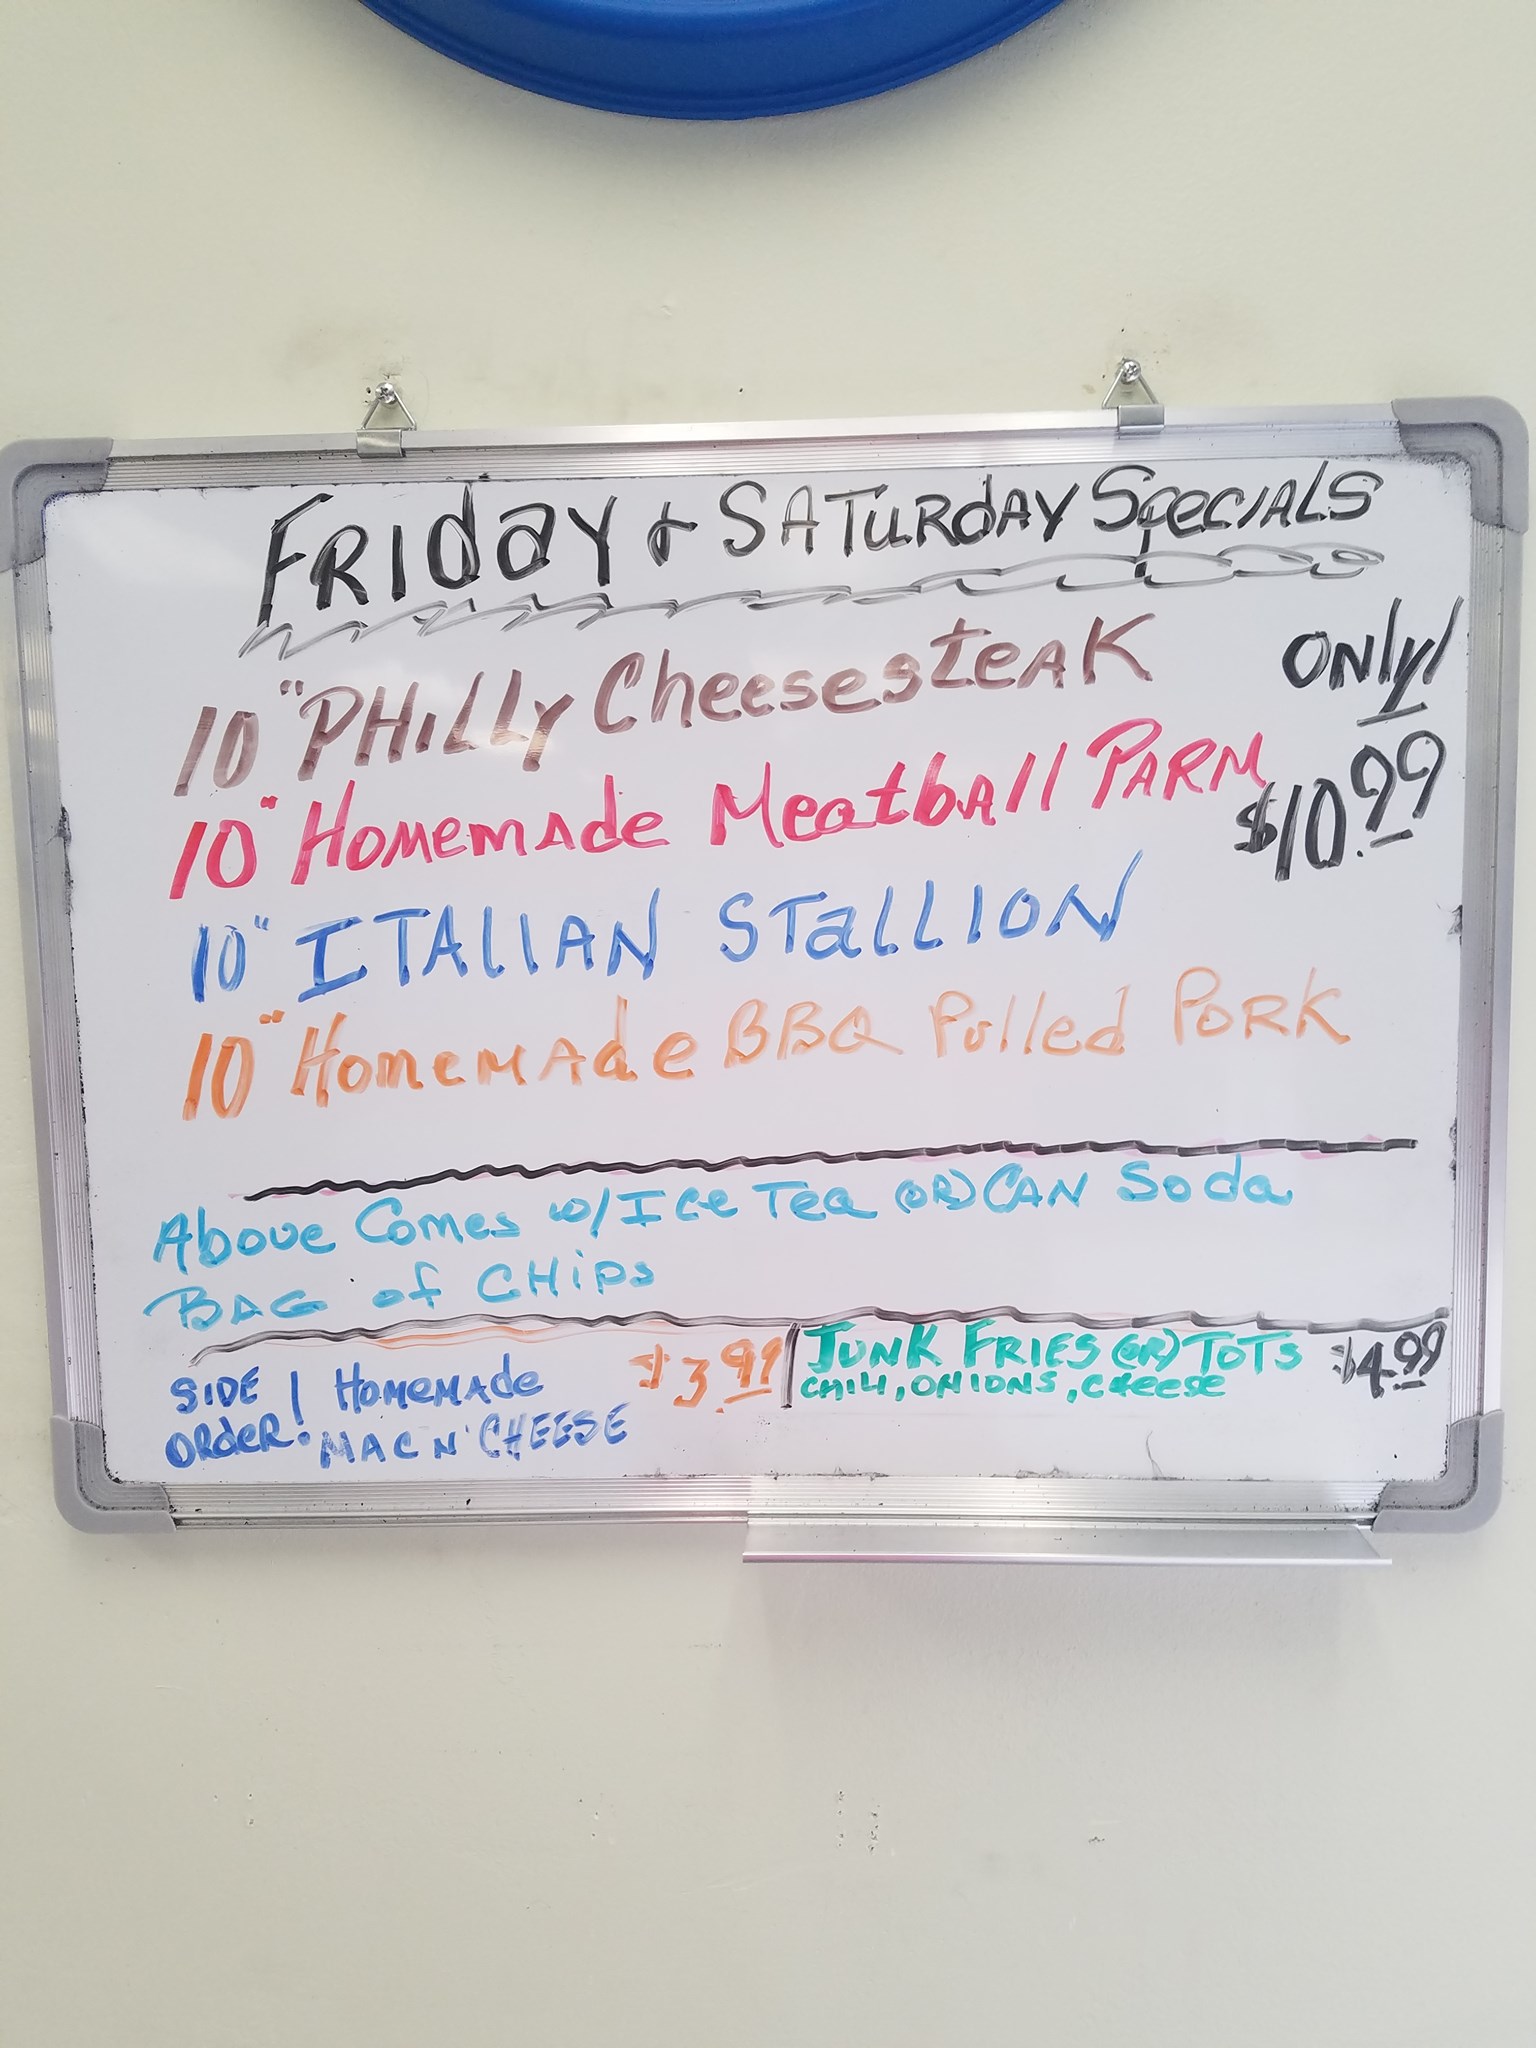 FRIday & SATURday SpecIALS
10" PHILLY CheesesteAK
ONly!
10" HomemAde MeatbAll PARM
$10.99
10" ITALIAN STaLLION
10" HomemAde BBQ Pulled PORK
Above Comes w/ Ice Tea (OR) CAN Soda
BAG of CHips
SIDE | HomemAde $3.99
ORdeR! MAC N' CHEESE
JUNK FRIES (OR) TOTS $4.99
CHILI, ONIONS, CHeese